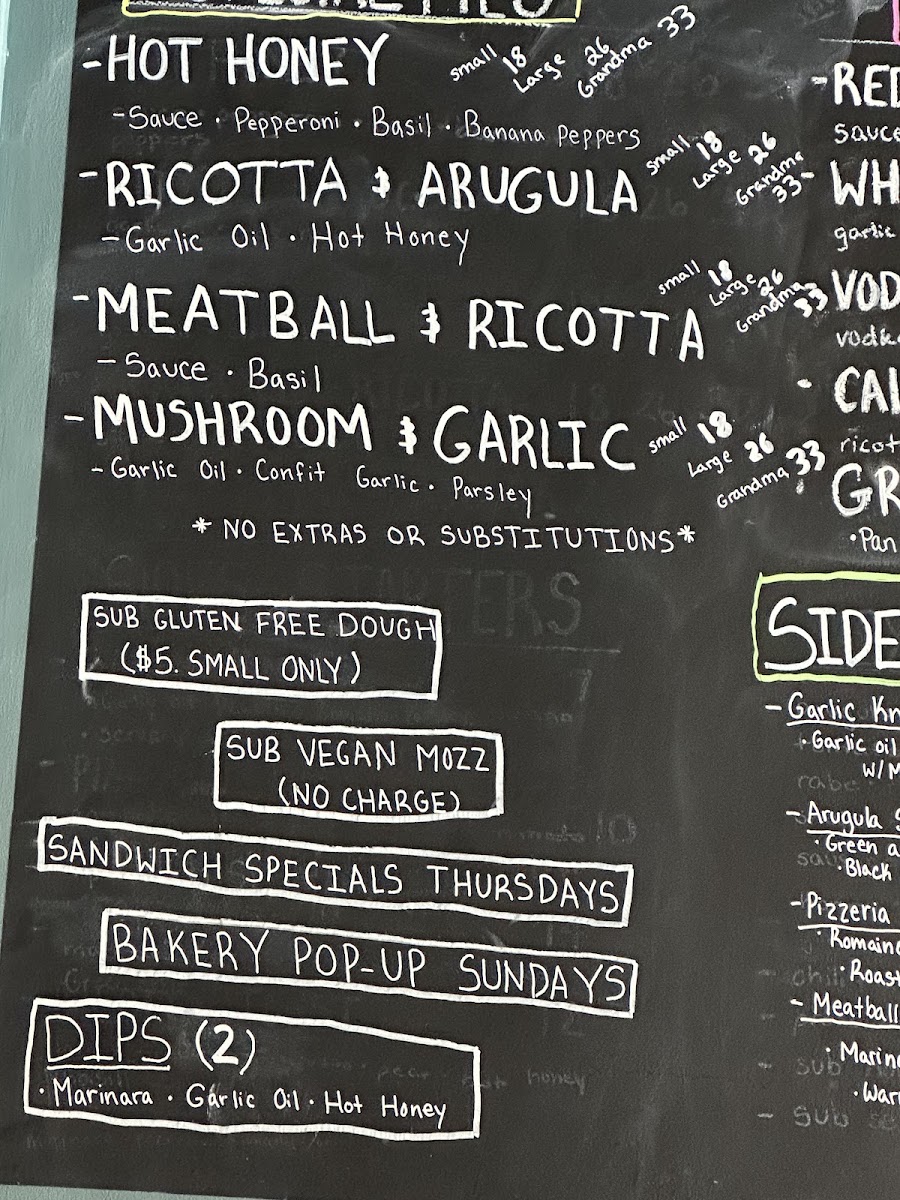 -HOT HONEY small 18 Large 26 Grandma 33
-Sauce · Pepperoni · Basil · Banana Peppers
-RICOTTA & ARUGULA small 18 Large 26 Grandma 33
-Garlic Oil · Hot Honey
-MEATBALL & RICOTTA small 18 Large 26 Grandma 33
-Sauce · Basil
-MUSHROOM & GARLIC small 18 Large 26 Grandma 33
-Garlic Oil · Confit Garlic · Parsley
*NO EXTRAS OR SUBSTITUTIONS*
SUB GLUTEN FREE DOUGH
($5. SMALL ONLY)
SUB VEGAN MOZZ
(NO CHARGE)
SANDWICH SPECIALS THURSDAYS
BAKERY POP-UP SUNDAYS
DIPS (2)
·Marinara · Garlic Oil · Hot Honey
-RED
sauce
-WH
garlic
VOD
vodk
-CAL
ricot
GR
·Pan
SIDE
-Garlic Kn
·Garlic oil
W/M
-Arugula S
·Green a
·Black
-Pizzeria
·Romain
·Roast
-Meatball
·Marin
·War